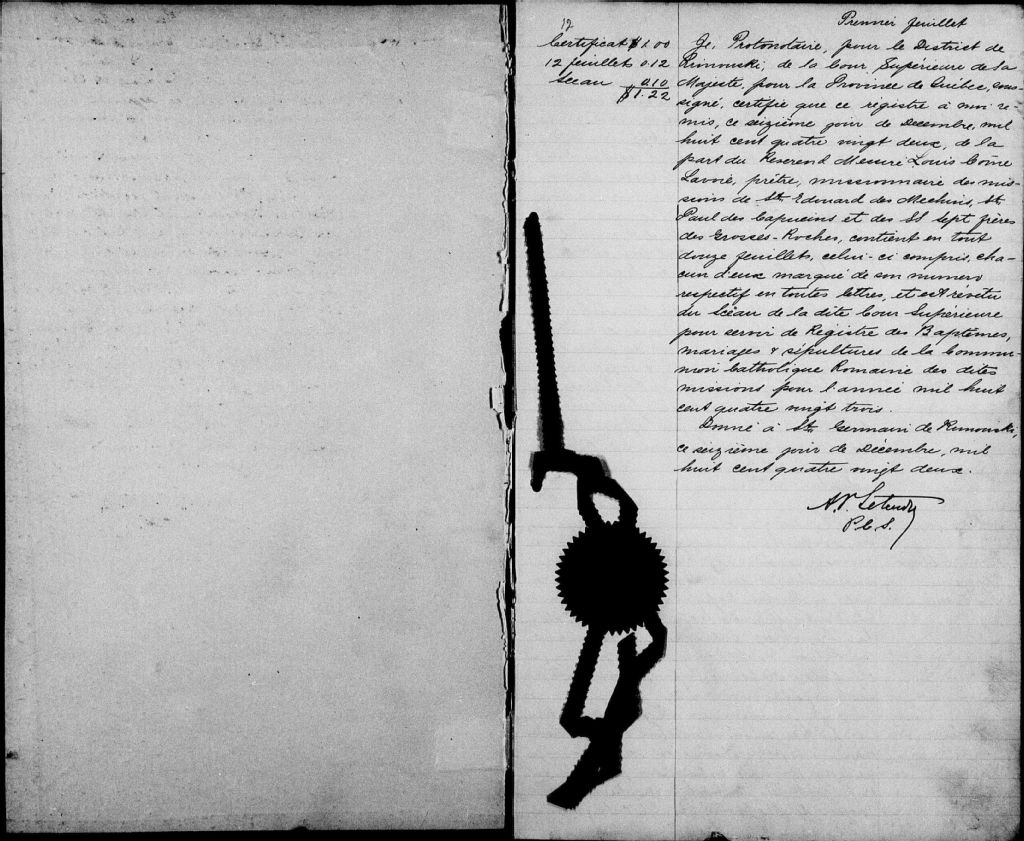 Premier feuillet
12
Certificat $1.00
12 feuillets 0.12
Sceau 0.10
$1.22
Je, Protonotaire, pour le District de
Rimouski, de la Cour Supérieure de Sa
Majesté, pour la Province de Québec, sous-
signé, certifie que ce registre à moi re-
mis, ce seizième jour de Décembre, mil
huit cent quatre vingt deux, de la
part du Révérend Messire Louis Côme
Lavoie, prêtre, missionnaire des mis-
sions de St. Edouard des Mechins, St.
Paul des Capucins et des SS Sept frères
des Grosses-Roches, contient en tout
douze feuillets, celui-ci compris, cha-
cun d'eux marqué de son numero
respectif en toutes lettres, et est révetu
du Scéau de la dite Cour Supérieure
pour servir de Registre des Baptêmes,
mariages & sépultures de la Commu-
nion Catholique Romaine des dites
missions pour l'année mil huit
cent quatre vingt trois.
Donné à St. Germain de Rimouski,
ce seizième jour de Décembre, mil
huit cent quatre vingt deux.
P.C.S.